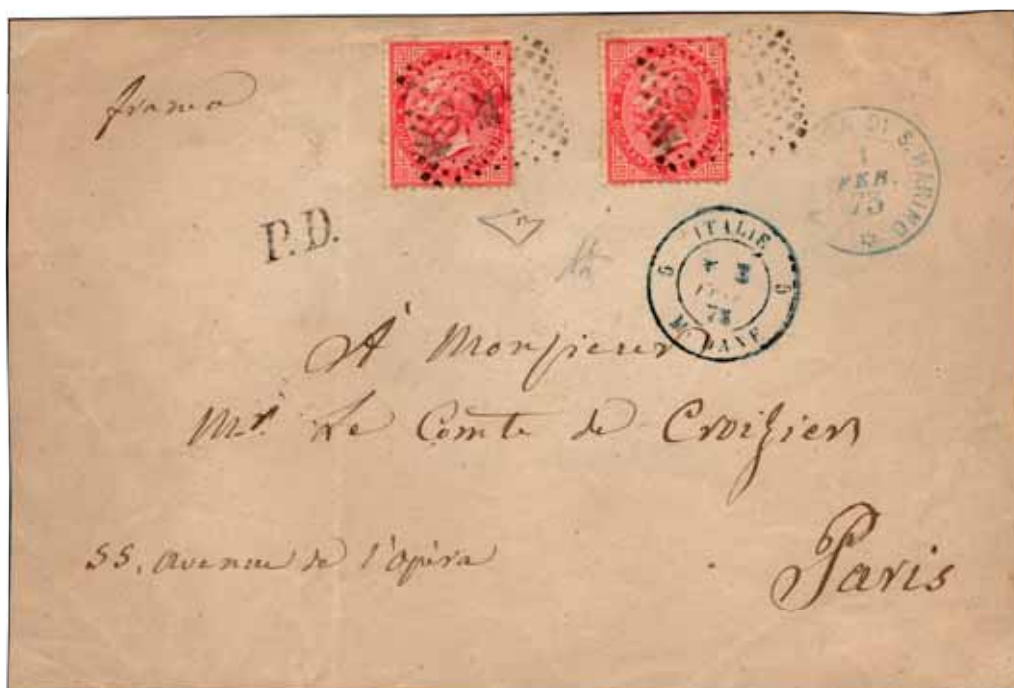 franco
P.D.
DI S. MARINO
1
FEB.
73
ITALIE
5 5
73
MODANE
À Monsieur
Mr. Le Comte de Croizier
55, avenue de l'opéra
Paris